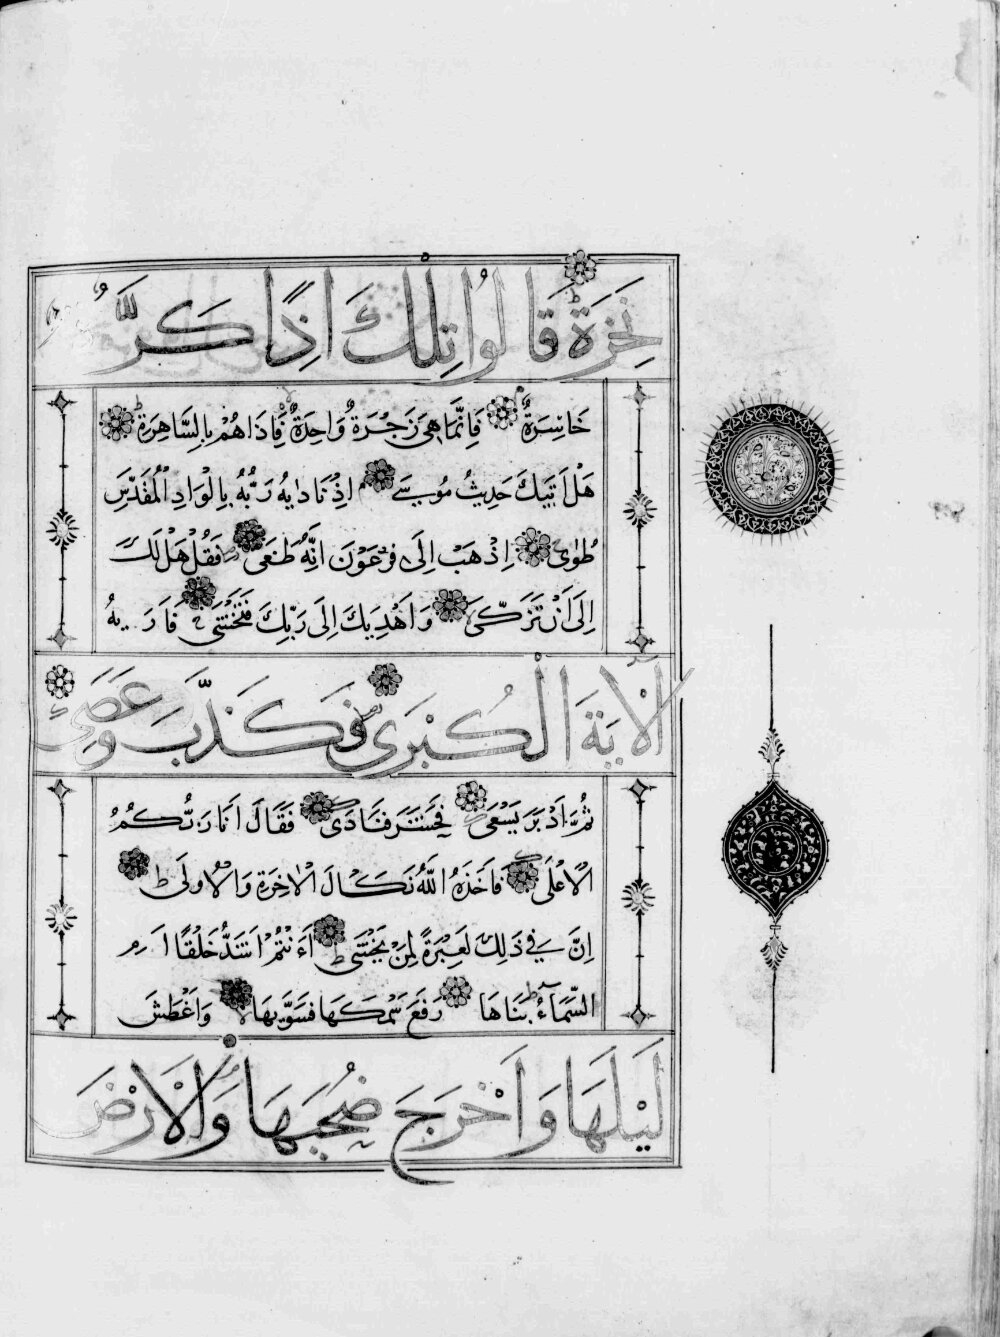 نَخِرَةً قَالُوا تِلْكَ اِذًا كَرَّةٌ
خَاسِرَةٌ فَاِنَّمَا هِيَ زَجْرَةٌ وَاحِدَةٌ فَاِذَا هُمْ بِالسَّاهِرَةِ
هَلْ اَتٰيكَ حَدِيثُ مُوسٰى اِذْ نَادٰيهُ رَبُّهُ بِالْوَادِ الْمُقَدَّسِ
طُوًى اِذْهَبْ اِلَى فِرْعَوْنَ اِنَّهُ طَغَى فَقُلْ هَلْ لَكَ
اِلَى اَنْ تَزَكَّى وَاَهْدِيَكَ اِلَى رَبِّكَ فَتَخْشَى فَاَرٰيهُ
الْاٰيَةَ الْكُبْرَى فَكَذَّبَ وَعَصَى
ثُمَّ اَدْبَرَ يَسْعَى فَحَشَرَ فَنَادَى فَقَالَ اَنَا رَبُّكُمُ
الْاَعْلَى فَاَخَذَهُ اللّٰهُ نَكَالَ الْاٰخِرَةِ وَالْاُولَى
اِنَّ فِي ذَلِكَ لَعِبْرَةً لِمَنْ يَخْشَى ءَاَنْتُمْ اَشَدُّ خَلْقًا اَمِ
السَّمَآءُ بَنَاهَا رَفَعَ سَمْكَهَا فَسَوّٰيهَا وَاَغْطَشَ
لَيْلَهَا وَاَخْرَجَ ضُحٰيهَا وَالْاَرْضَ